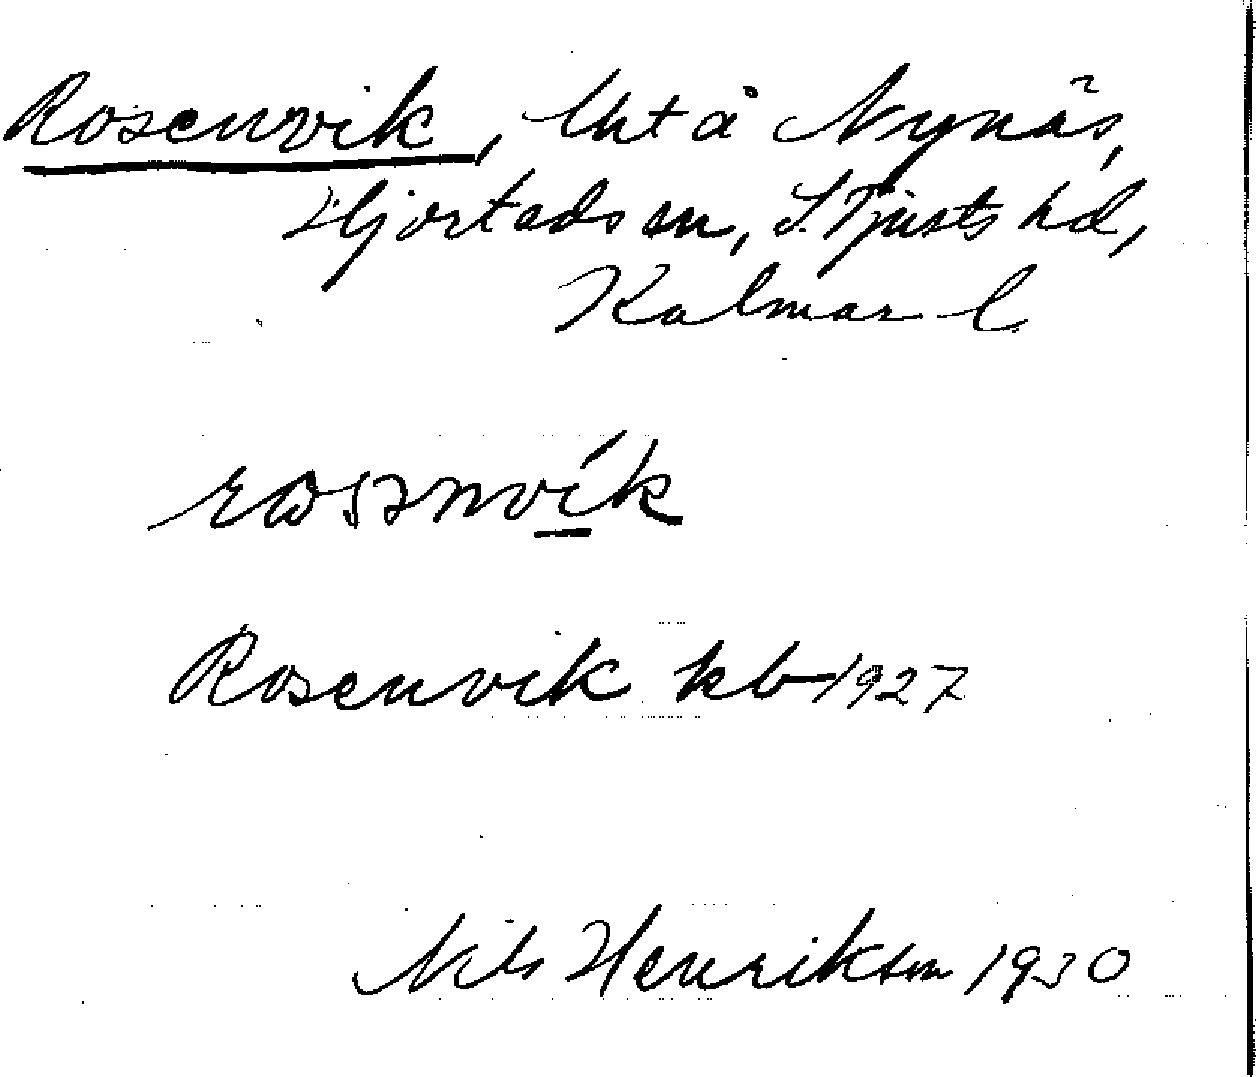 Rosenvik, lht å Nynäs,
Hjorteds sn, S. Tjusts hd,
Kalmar l.
Rosenvik kb 1927
Nils Henrikson 1930